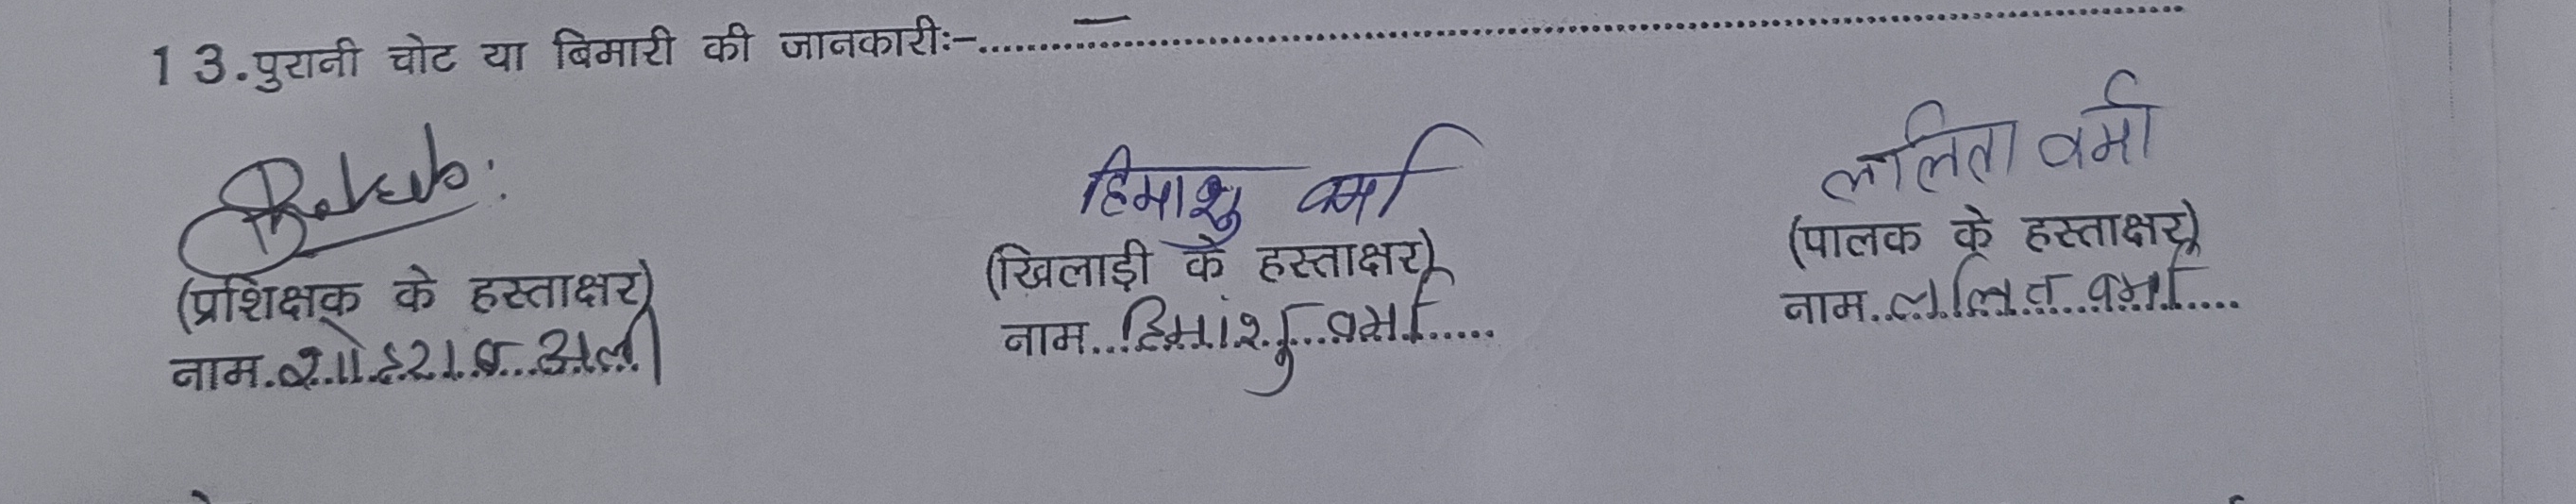 13.पुरानी चोट या बिमारी की जानकारीः-....—....
हिमाशु वर्मा
ललिता वर्मा
(प्रशिक्षक के हस्ताक्षर)
(खिलाड़ी के हस्ताक्षर)
(पालक के हस्ताक्षर)
नाम. अली
नाम...हिमांशु..वर्मा.....
नाम..ललित..वर्मा....